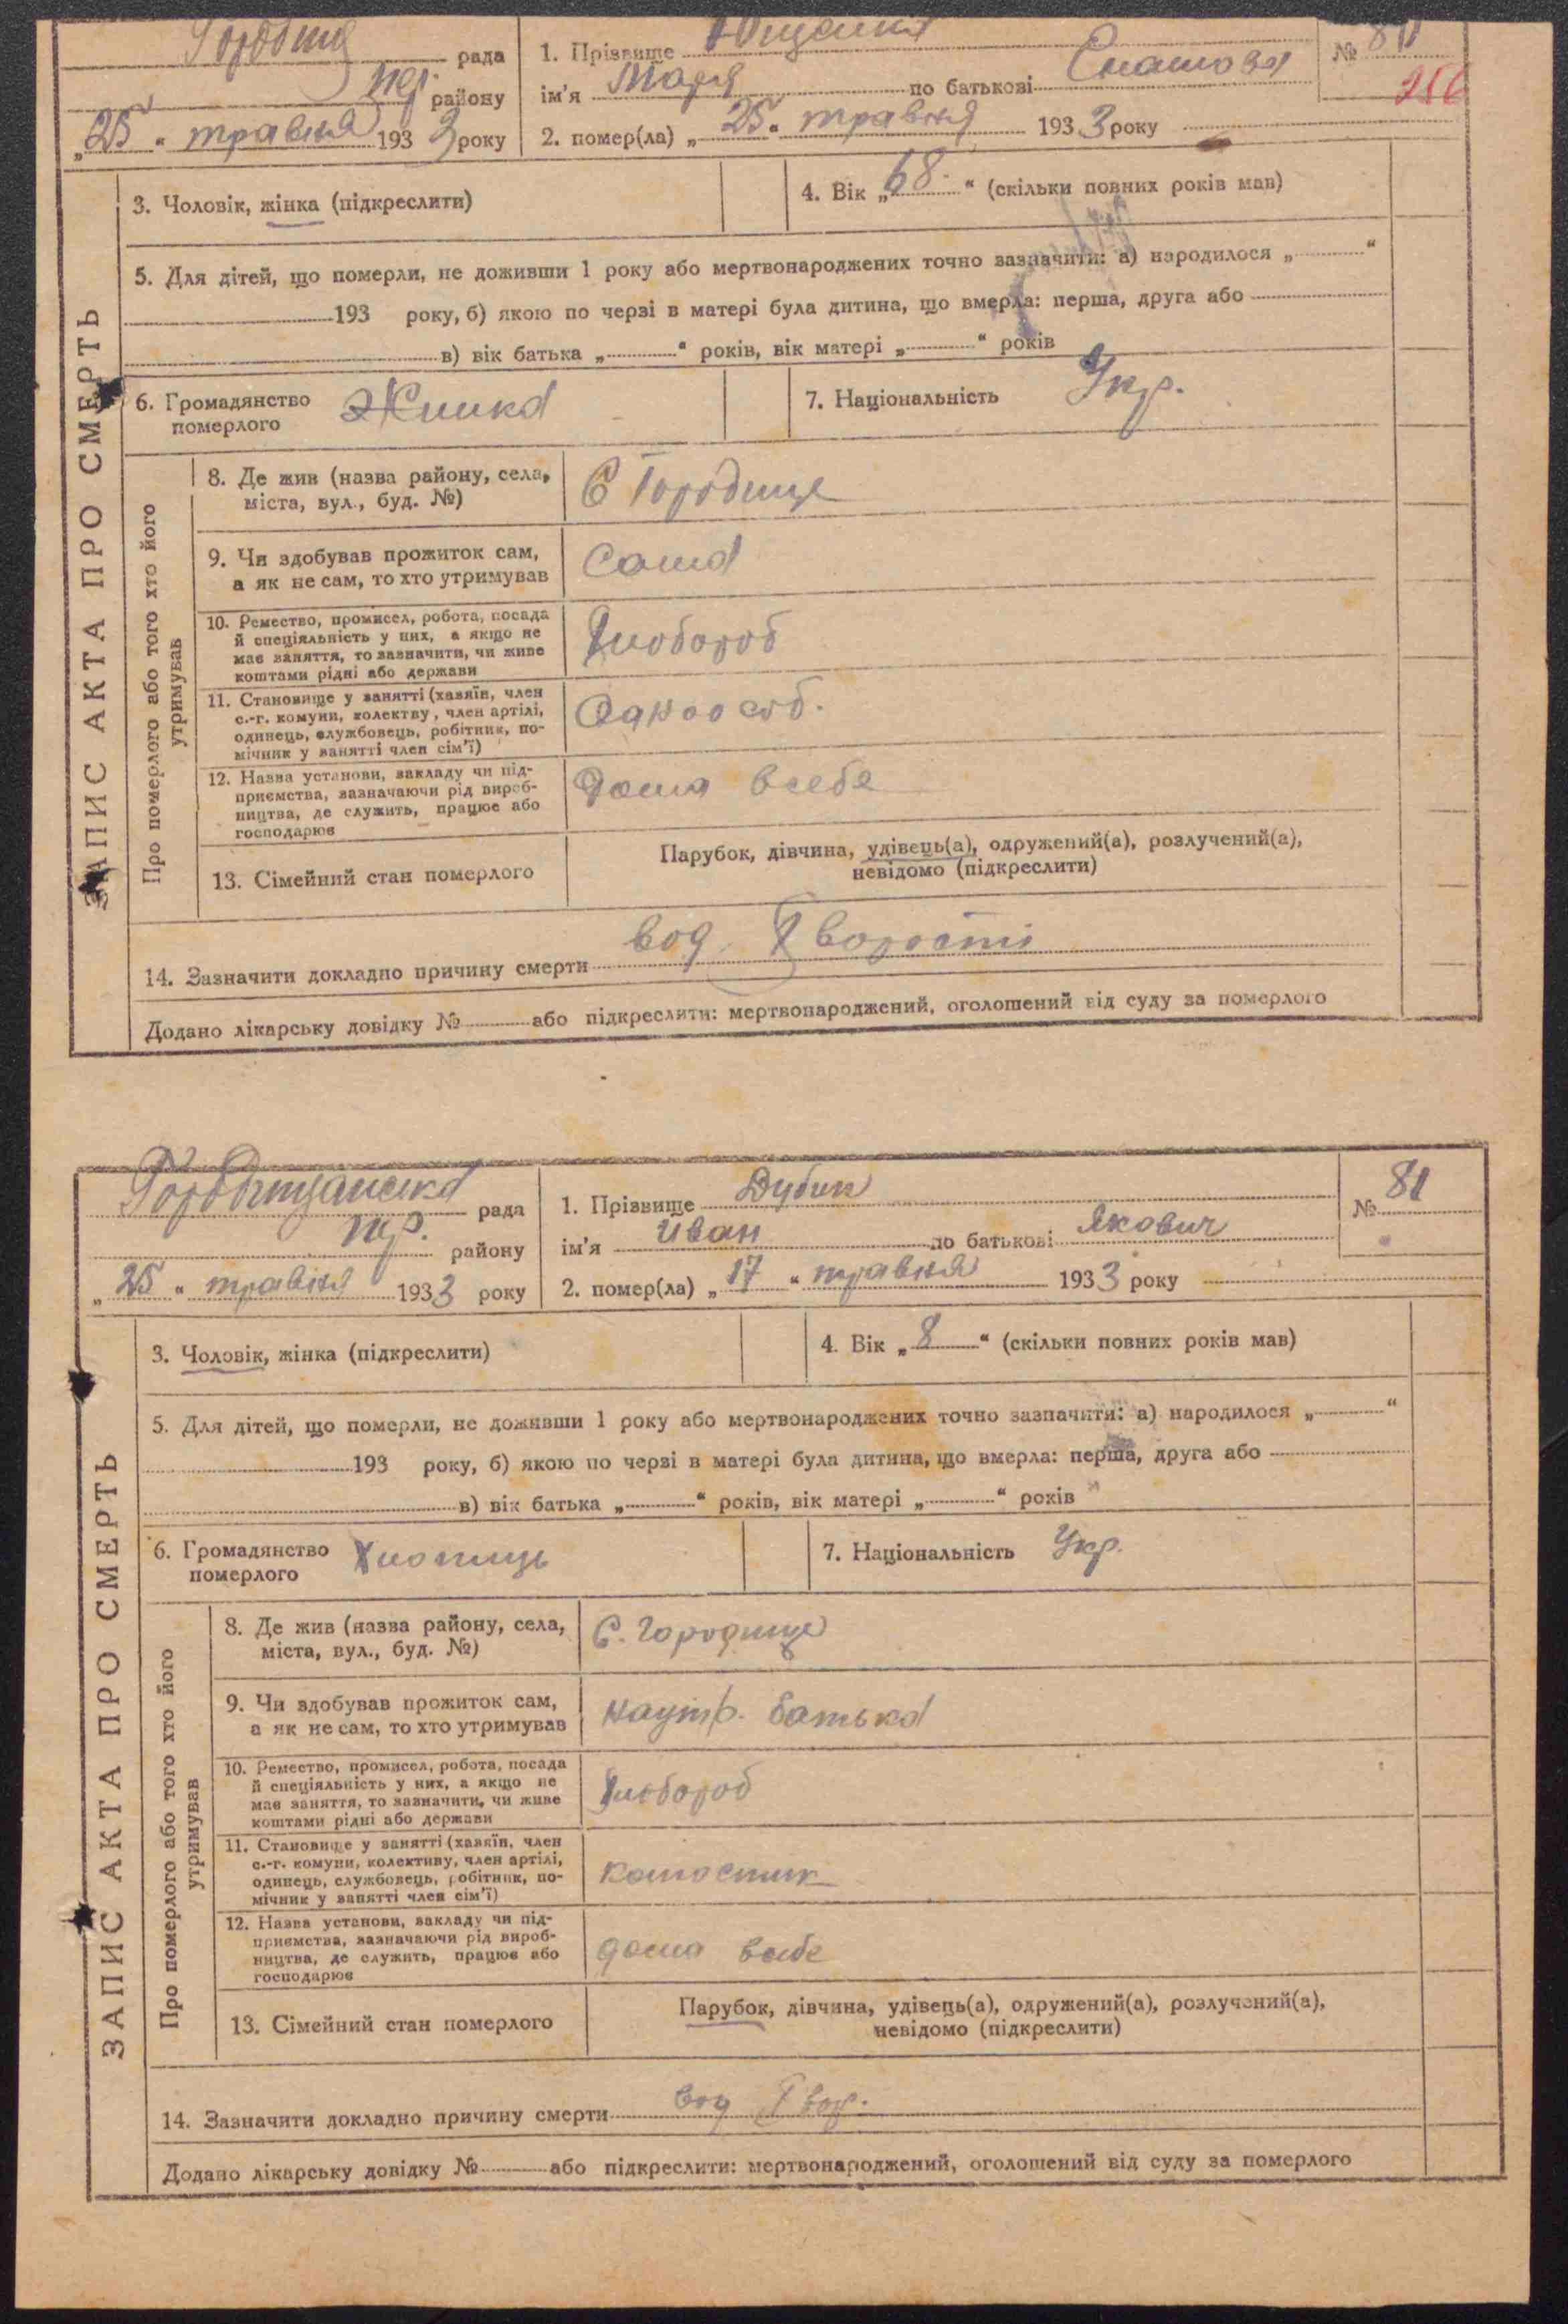 рада
району
„25“ травня 1933 року
1. Прізвище Ющенко
ім'я Марія по батькові
2. помер(ла) „25“ травня 1933 року
№ 80
256
ЗАПИС АКТА ПРО СМЕРТЬ
3. Чоловік, жінка (підкреслити)
4. Вік „68“ (скільки повних років мав)
5. Для дітей, що померли, не доживши 1 року або мертвонароджених точно зазначити: а) народилося „ “
193 року, б) якою по черзі в матері була дитина, що вмерла: перша, друга або
в) вік батька „ “ років, вік матері „ “ років
6. Громадянство
померлого
Жинка
7. Національність Укр.
Про померлого або того хто його
утримував
8. Де жив (назва району, села,
міста, вул., буд. №)
С Городище
9. Чи здобував прожиток сам,
а як не сам, то хто утримував
Сама
10. Ремество, промисел, робота, посада
й спеціяльність у них, а якщо не
має заняття, то зазначити, чи живе
коштами рідні або держави
Хлібороб
11. Становище у занятті (хазяїн, член
с.-г. комуни, колектву, член артілі,
одинець, службовець, робітник, по-
мічник у занятті член сім'ї)
Одноособ.
12. Назва установи, закладу чи під-
приємства, зазначаючи рід вироб-
ництва, де служить, працює або
господарює
Дома в себе
13. Сімейний стан померлого
Парубок, дівчина, удівець(а), одружений(а), розлучений(а),
невідомо (підкреслити)
14. Зазначити докладно причину смерти вод Хворости
Додано лікарську довідку № або підкреслити: мертвонароджений, оголошений від суду за померлого
Городищанська рада
району
„25“ травня 1933 року
1. Прізвище Дубик
ім'я Иван по батькові Якович
2. помер(ла) „17“ травня 1933 року
№ 81
ЗАПИС АКТА ПРО СМЕРТЬ
3. Чоловік, жінка (підкреслити)
4. Вік „8“ (скільки повних років мав)
5. Для дітей, що померли, не доживши 1 року або мертвонароджених точно зазначити: а) народилося „ “
193 року, б) якою по черзі в матері була дитина, що вмерла: перша, друга або
в) вік батька „ “ років, вік матері „ “ років
6. Громадянство
померлого
Хлопиць
7. Національність Укр.
Про померлого або того хто його
утримував
8. Де жив (назва району, села,
міста, вул., буд. №)
С. Городище
9. Чи здобував прожиток сам,
а як не сам, то хто утримував
батька
10. Ремество, промисел, робота, посада
й спеціяльність у них, а якщо не
має заняття, то зазначити, чи живе
коштами рідні або держави
Хлібороб
11. Становище у занятті (хазяїн, член
с.-г. комуни, колективу, член артілі,
одинець, службовець, робітник, по-
мічник у занятті член сім'ї)
12. Назва установи, закладу чи під-
приємства, зазначаючи рід вироб-
ництва, де служить, працює або
господарює
дома всебе
13. Сімейний стан померлого
Парубок, дівчина, удівець(а), одружений(а), розлучений(а),
невідомо (підкреслити)
14. Зазначити докладно причину смерти вод Хвор.
Додано лікарську довідку № або підкреслити: мертвонароджений, оголошений від суду за померлого